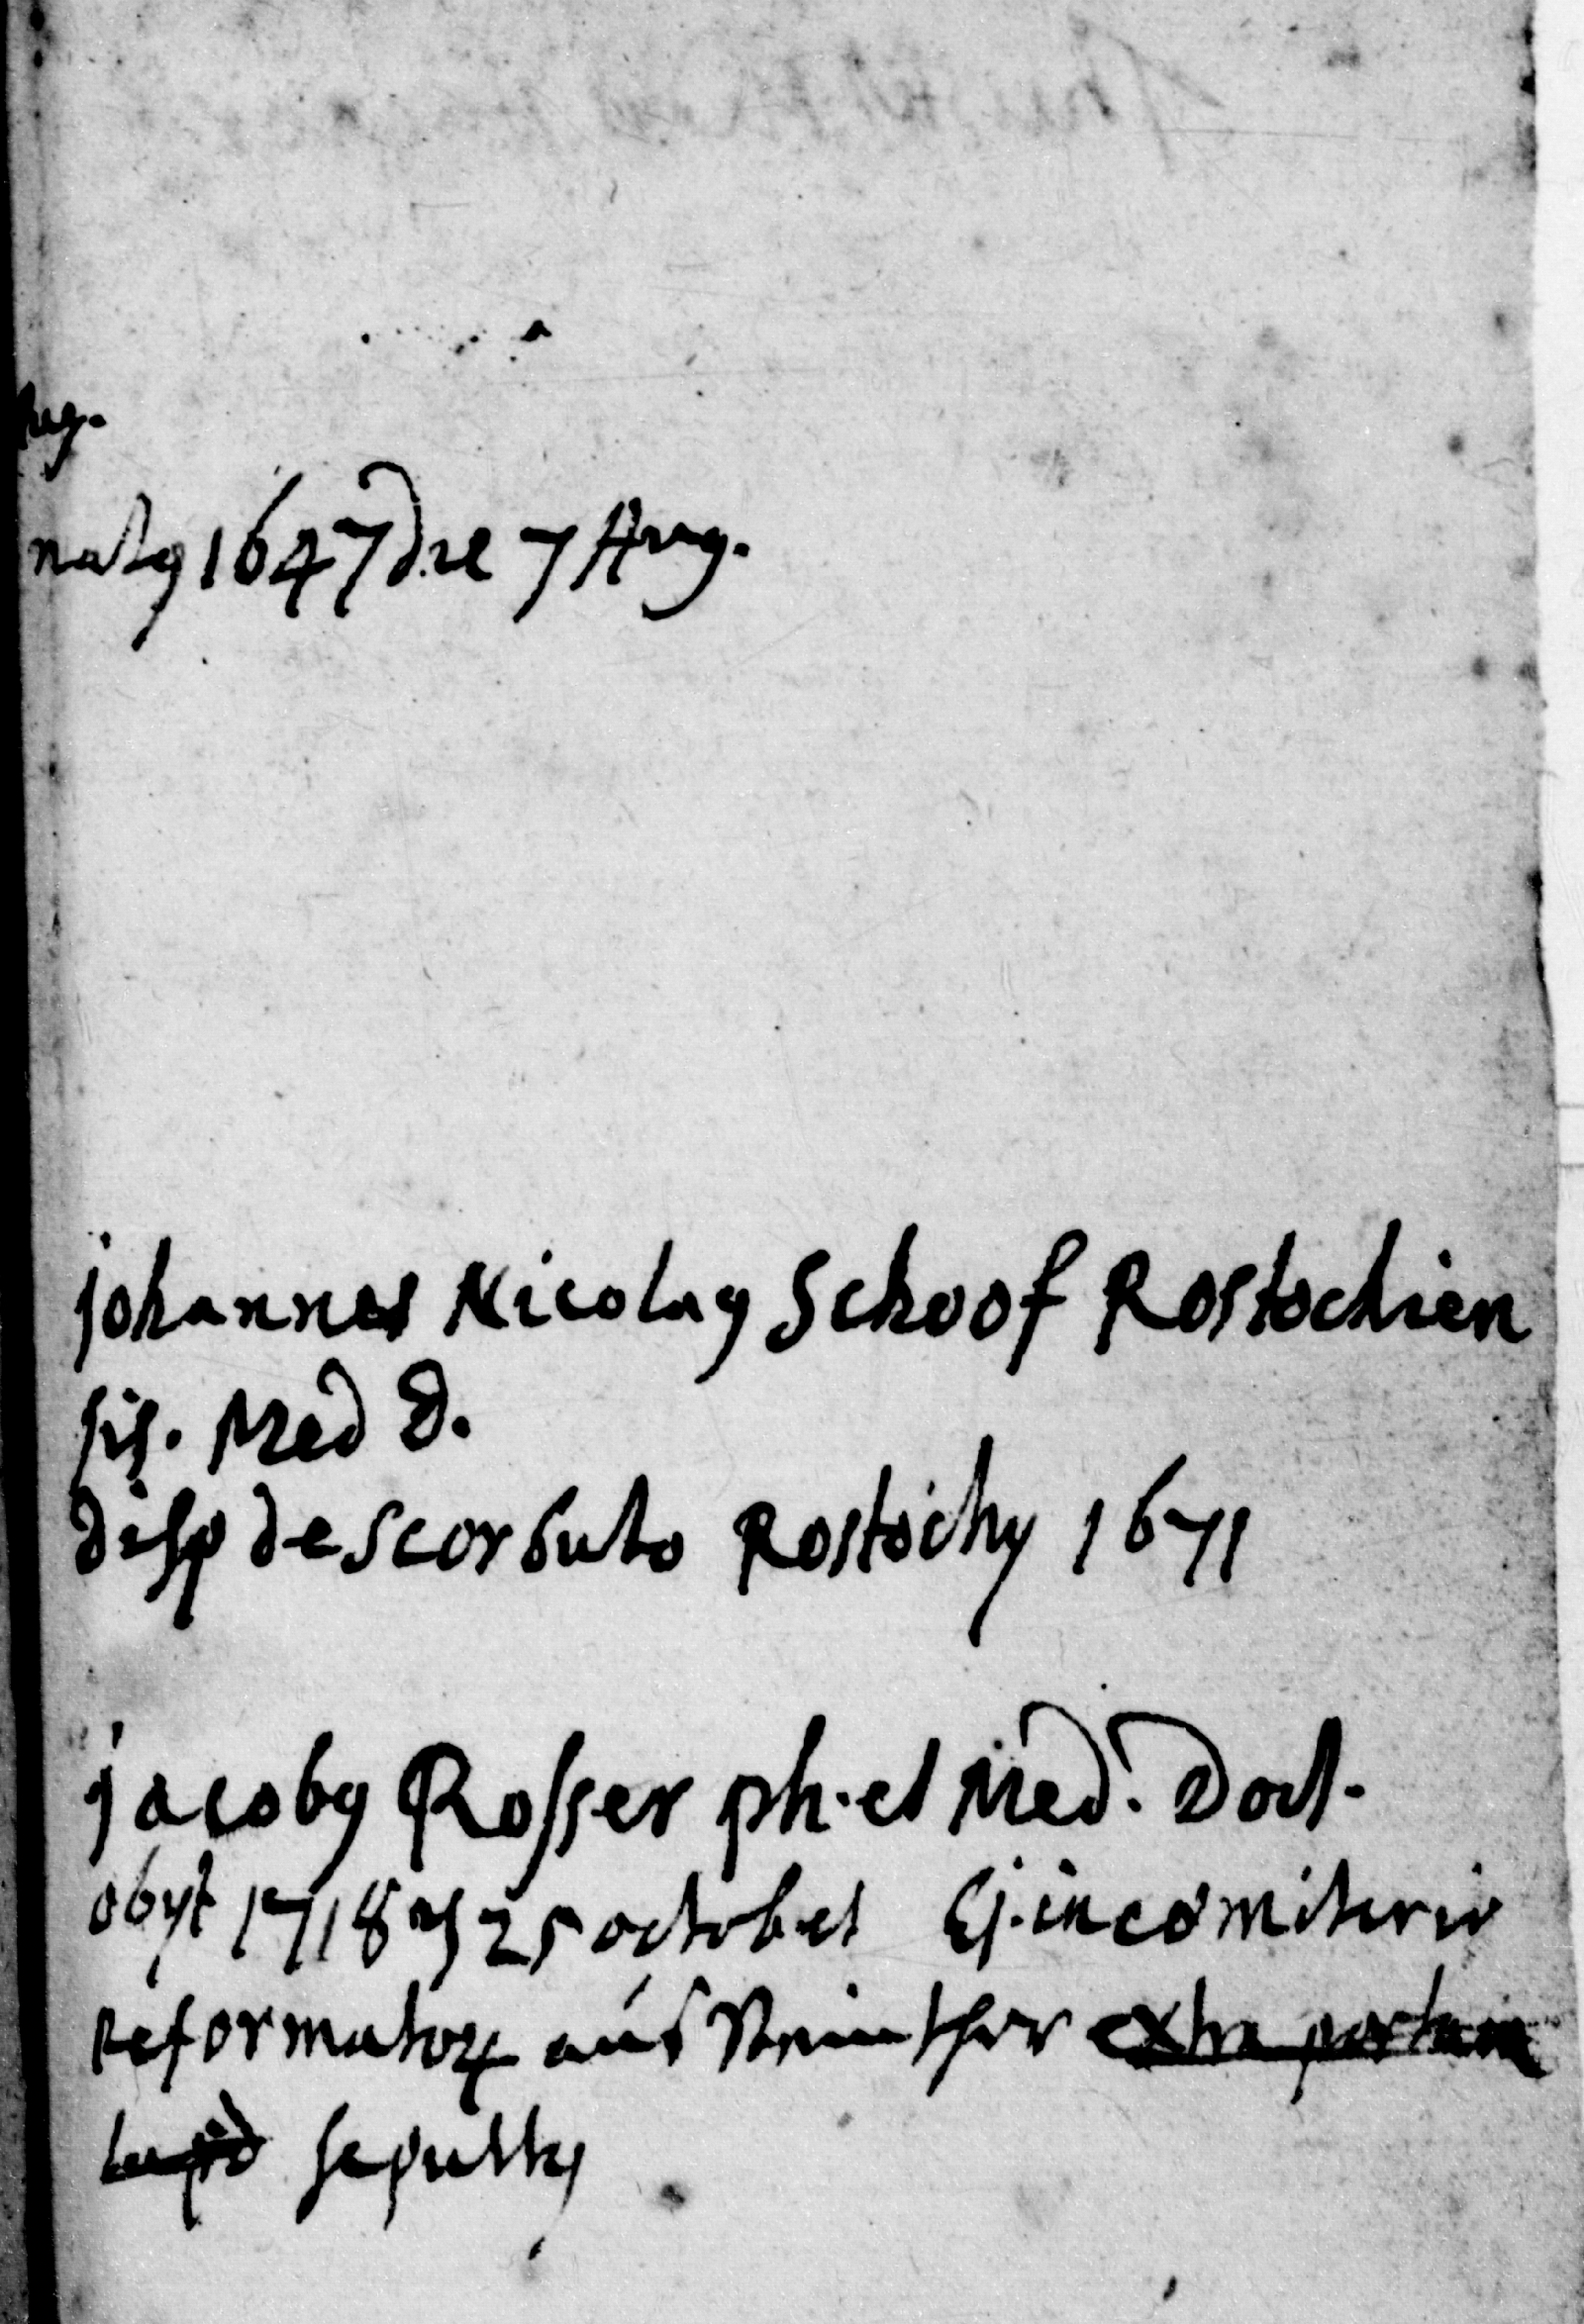 natꝯ 1647 die 7 Aug.
johannes Nicolaꝯ Schoof Rostochien
sis. Med D.
disp de scorbuto Rostochij 1671
jacobꝯ Rosser ph. et Med. Doct.
obijt 1718 25 octobr et in comiterio
reformatoꝝ aus Thor extra portam
lapid sepultꝯ